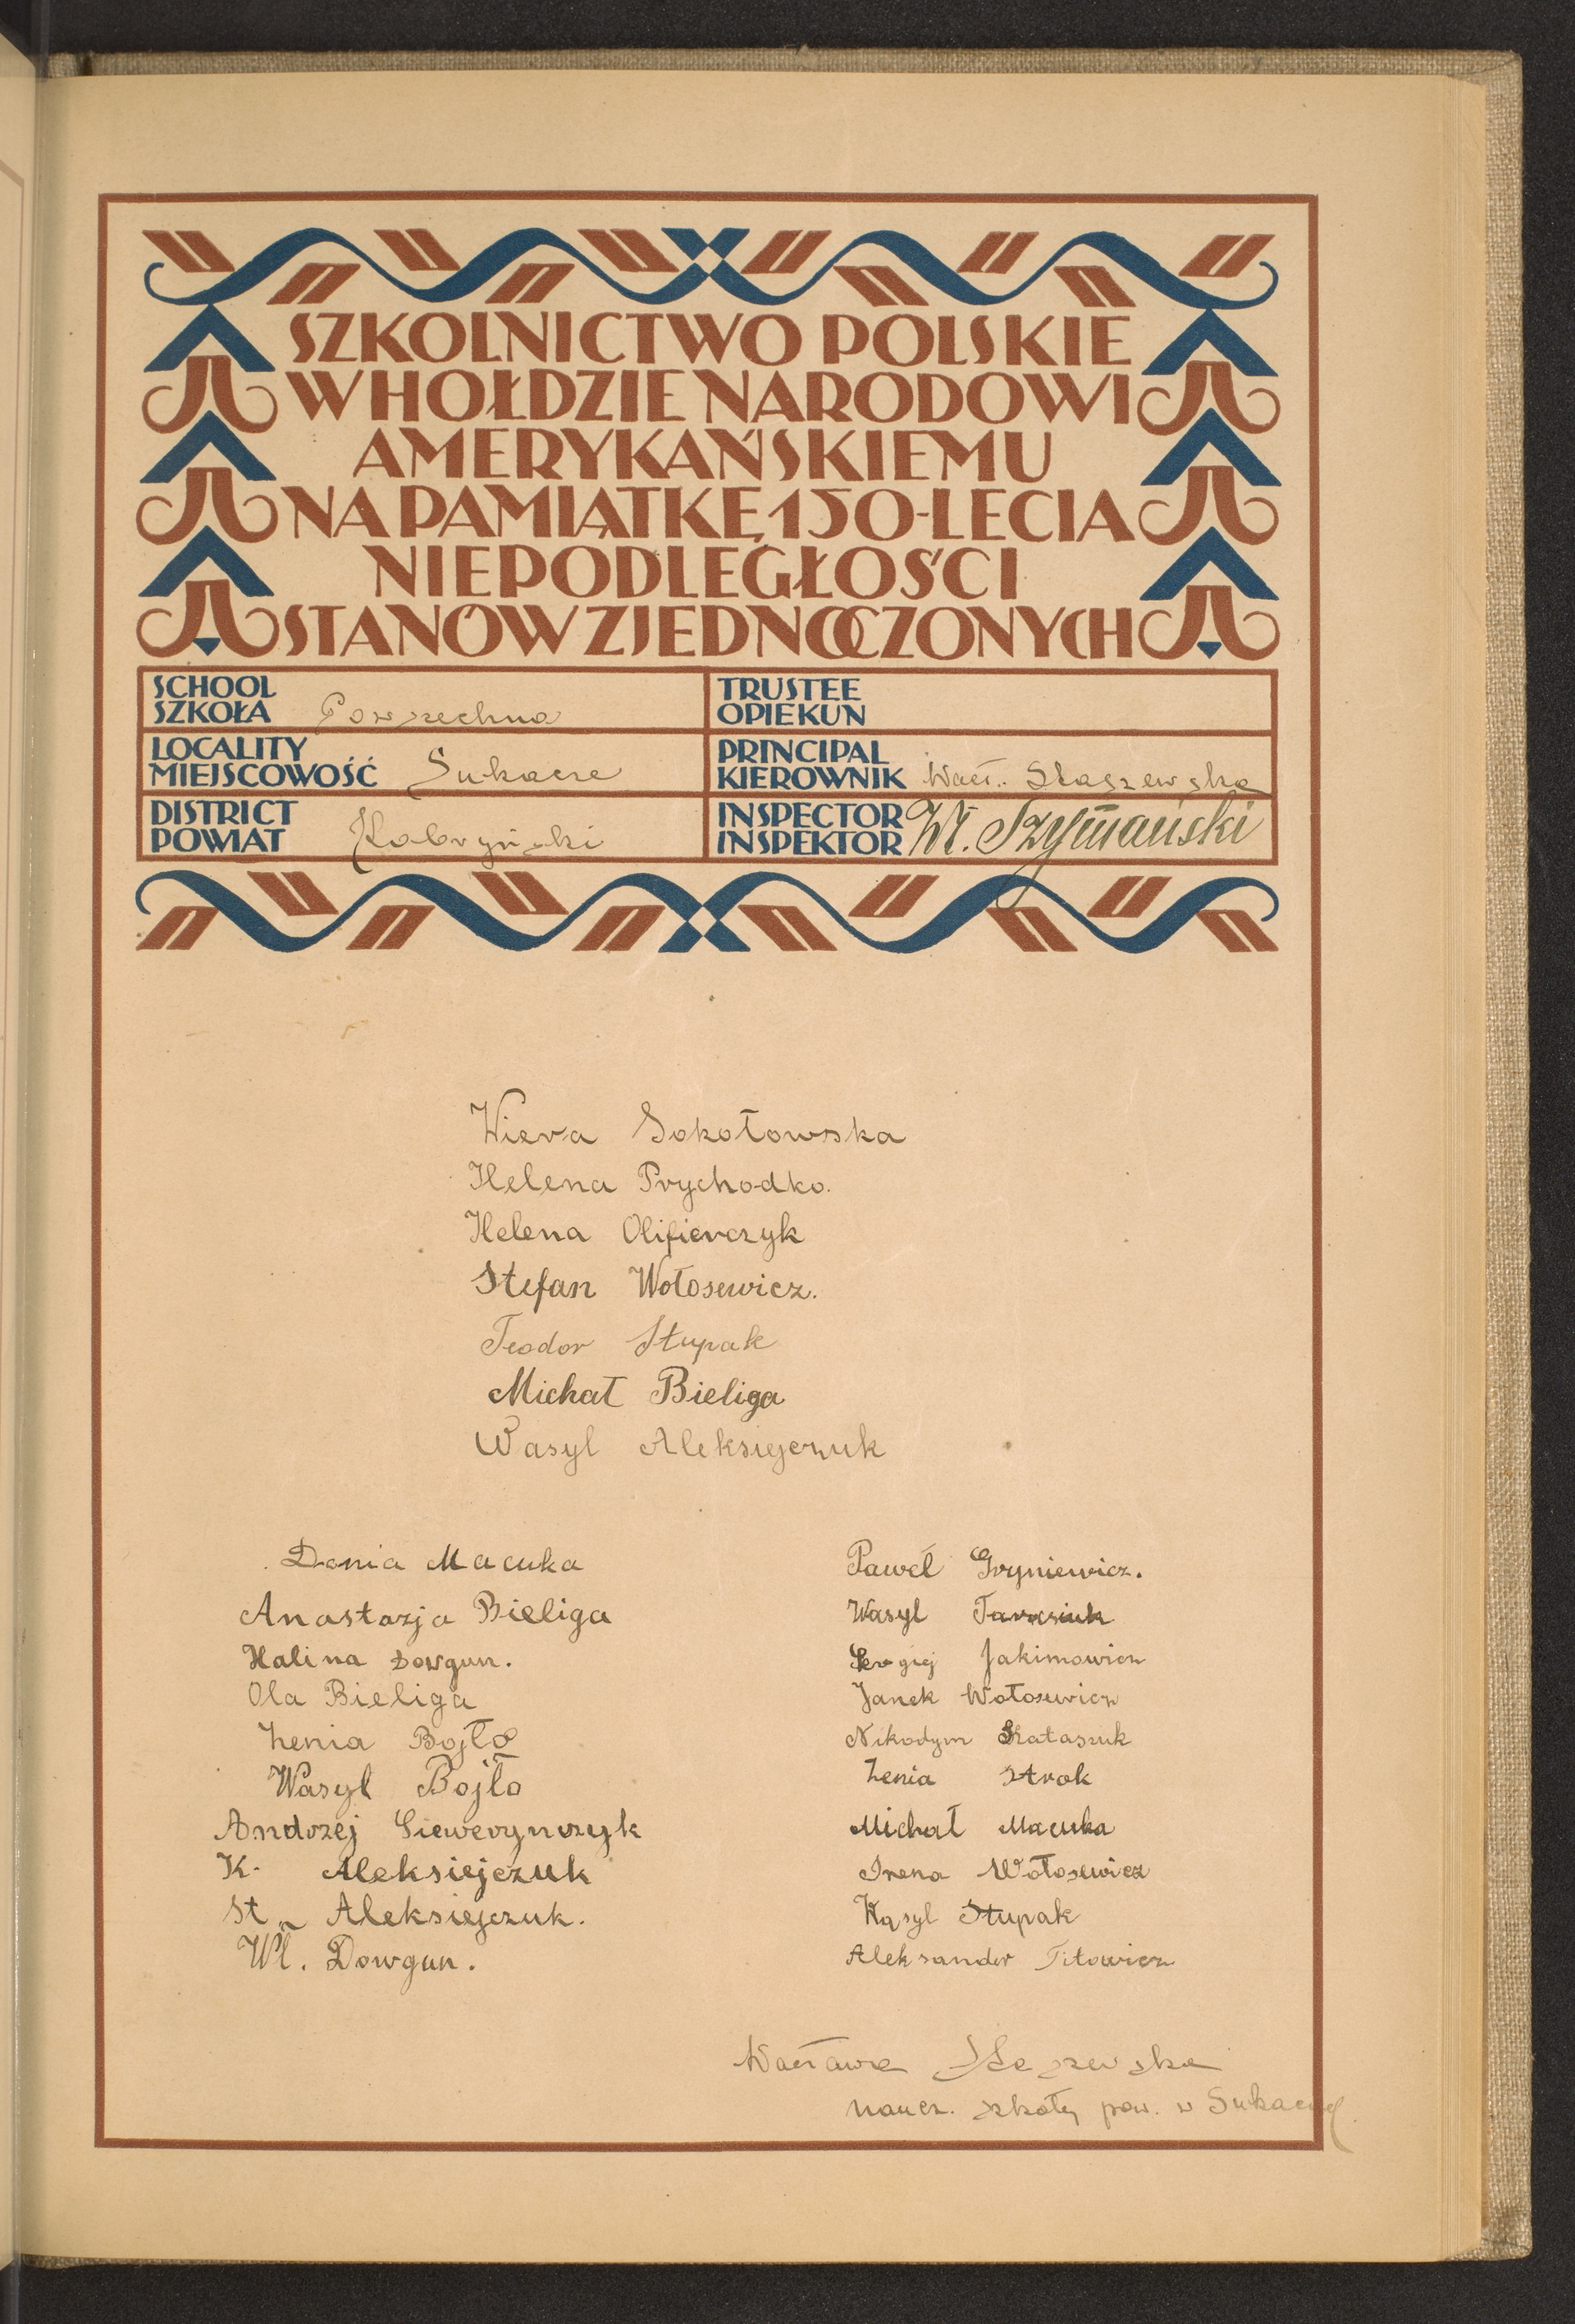 SZKOLNICTWO POLSKIE
W HOŁDZIE NARODOWI
AMERYKAŃSKIEMU
NA PAMIĄTKĘ 150-LECIA
NIEPODLEGŁOŚCI
STANÓW ZJEDNOCZONYCH
SCHOOL
SZKOŁA Powszechna
TRUSTEE
OPIEKUN
LOCALITY
MIEJSCOWOŚĆ Sukacze
PRINCIPAL
KIEROWNIK Wacł. Staszewska
DISTRICT
POWIAT Kobryński
INSPECTOR
INSPEKTOR Wł. Szymański
Wiera Sokołowska
Helena Prychodko.
Helena Olifierczyk
Stefan Wołosewicz.
Teodor Stupak
Michał Bieliga
Wasyl Aleksiejczuk
Donia Macuka
Anastazja Bieliga
Halina Dowgun.
Ola Bieliga
Żenia Bojło
Wasyl Bojło
Andrzej Siewerynczyk
K. Aleksiejczuk
St. Aleksiejczuk.
Wł. Dowgun.
Paweł Gryniewicz.
Wasyl Tarasiuk
Sergiej Jakimowicz
Janek Wołosewicz
Nikodym Szataszuk
Żenia Strok
Michał Macuka
Irena Wołosewicz
Wasyl Stupak
Aleksander Titowicz
Wacława Staszewska
naucz. szkoły pow. w Sukaczach